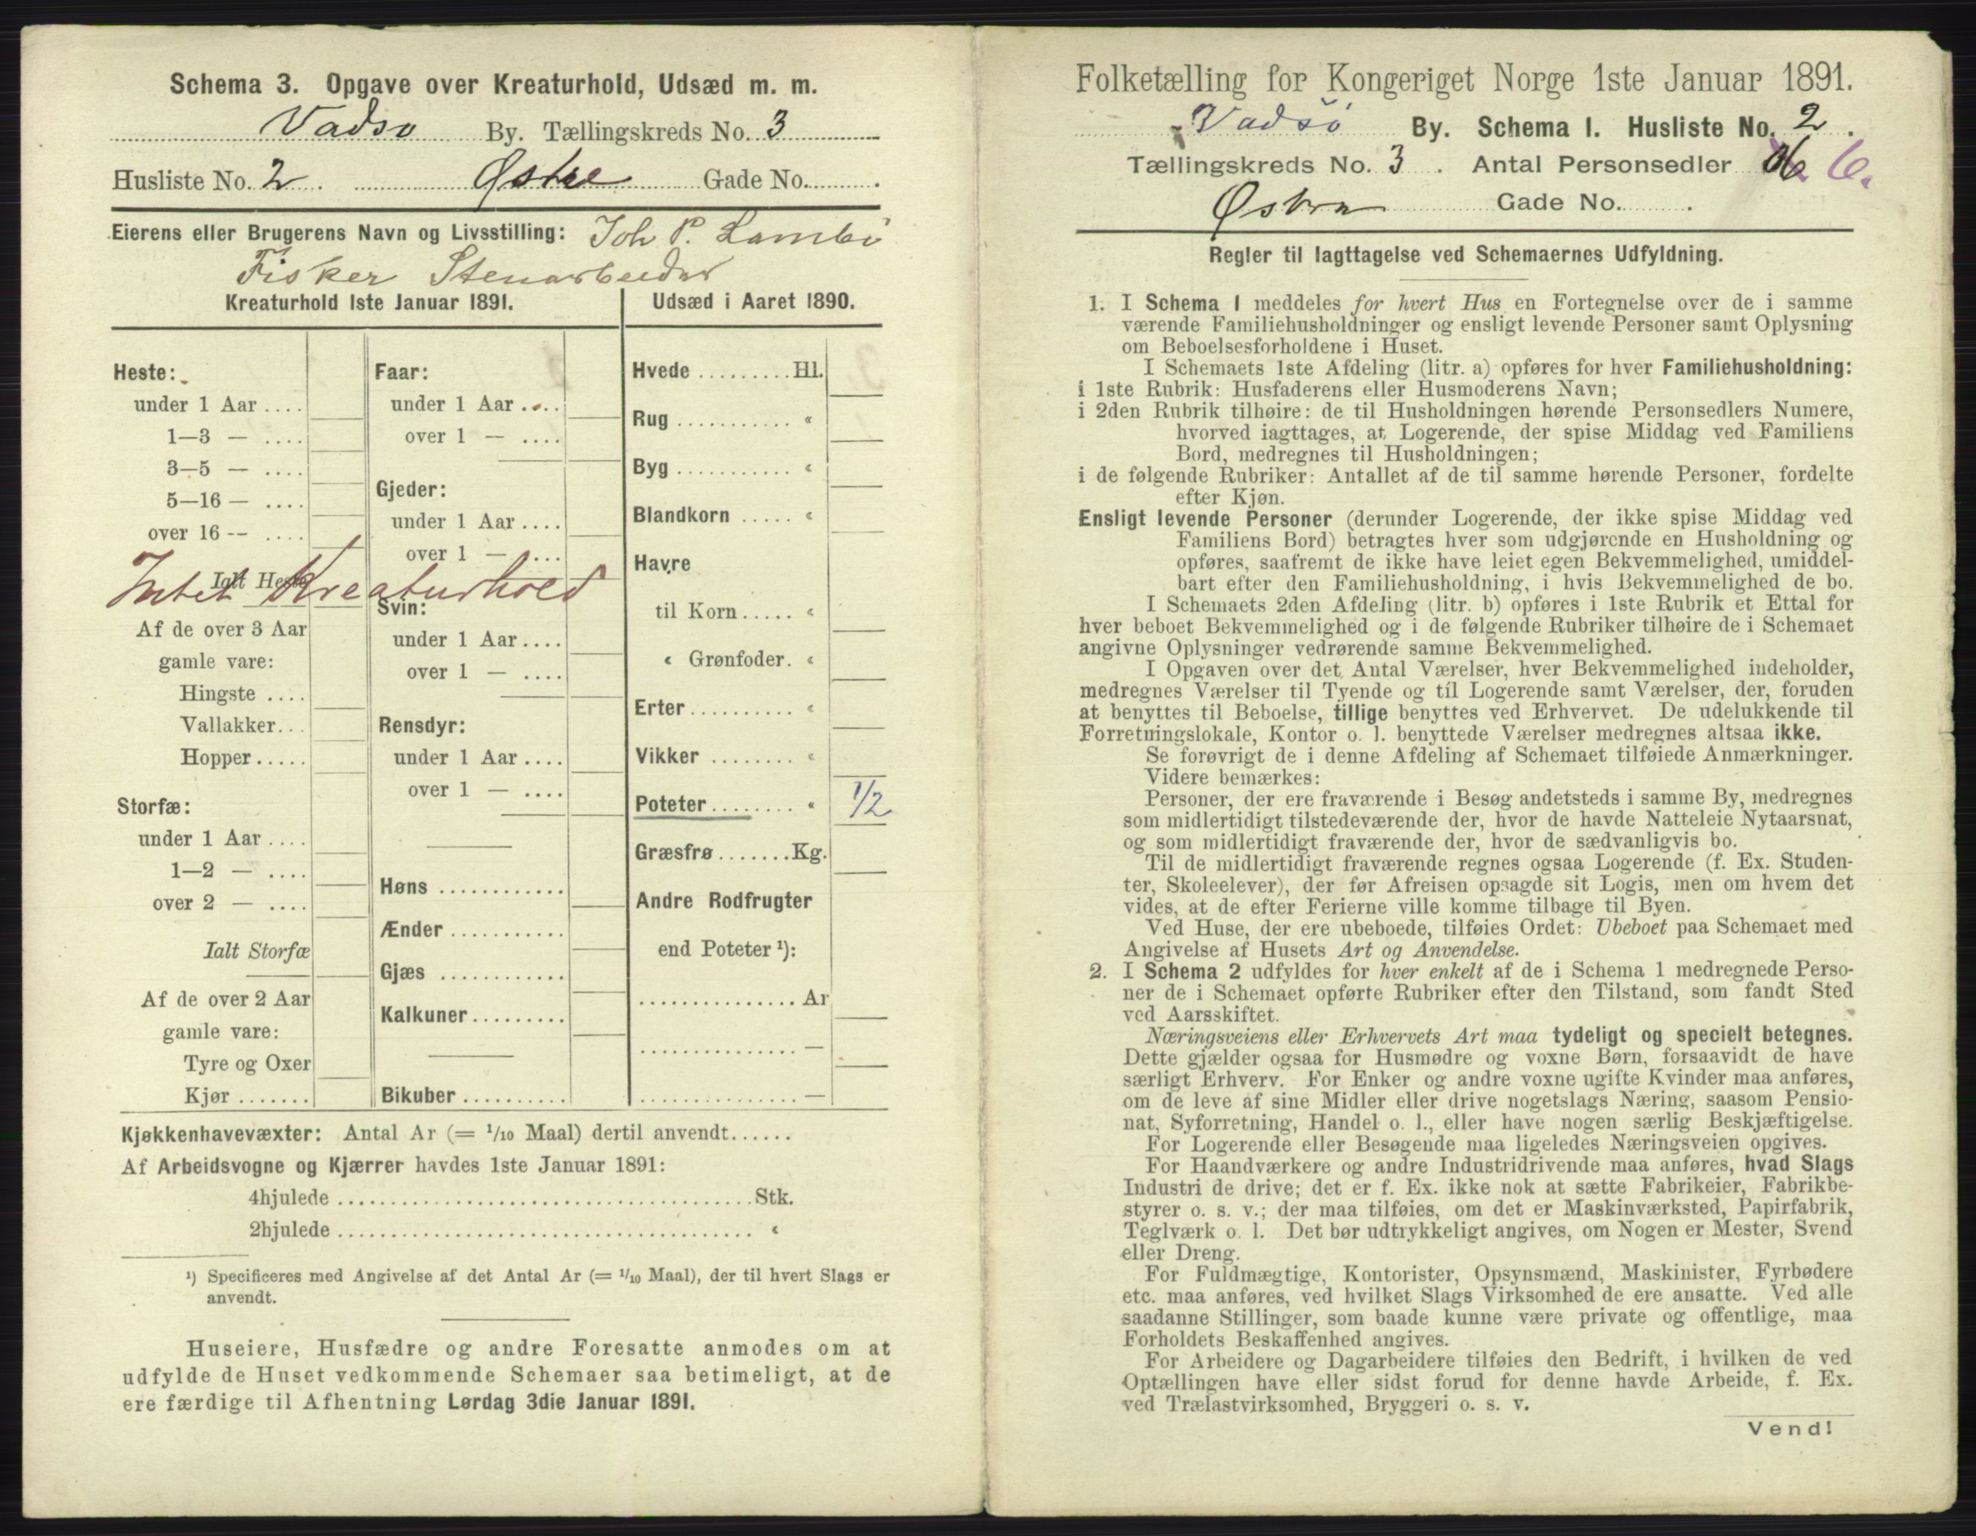 Schema 3. Opgave over Kreaturhold, Udsæd m. m.
Vadsø By. Tællingskreds No. 3
Husliste No. 2. Østre Gade No.
Eierens eller Brugerens Navn og Livsstilling: Joh P. Lambi
Fisker Stenarbeider
Kreaturhold 1ste Januar 1891.
Heste:
under 1 Aar ....
1—3 — ....
3—5 — ....
5—16 — ....
over 16 -- ....
Ialt Heste
Intet Kreaturhold
Af de over 3 Aar
gamle vare:
Hingste ....
Vallakker...
Hopper.....
Storfæ:
under 1 Aar ....
1—2 — ....
over 2 — ....
Ialt Storfæ
Af de over 2 Aar
gamle vare:
Tyre og Oxer
Kjør .......
Faar:
under 1 Aar ....
over 1 — ....
Gjeder:
under 1 Aar ....
over 1 — ....
Svin:
under 1 Aar ....
over 1 — ....
Rensdyr:
under 1 Aar ....
over 1 — ....
Høns ............
Ænder ...........
Gjæs ............
Kalkuner.........
Bikuber ..........
Udsæd i Aaret 1890.
Hvede .........Hl.
Rug ........... «
Byg ........... «
Blandkorn ..... «
Havre
til Korn..... «
« Grønfoder. «
Erter .......... «
Vikker ........ «
Poteter ........ « 1/2
Græsfrø.......Kg.
Andre Rodfrugter
end Poteter ¹):
............... Ar
............... —
............... —
Kjøkkenhavevæxter: Antal Ar (= 1/10 Maal) dertil anvendt......
Af Arbeidsvogne og Kjærrer havdes 1ste Januar 1891:
4hjulede ........................................Stk.
2hjulede ........................................ «
¹) Specificeres med Angivelse af det Antal Ar (= 1/10 Maal), der til hvert Slags er
anvendt.
Huseiere, Husfædre og andre Foresatte anmodes om at
udfylde de Huset vedkommende Schemaer saa betimeligt, at de
ere færdige til Afhentning Lørdag 3die Januar 1891.
Folketælling for Kongeriget Norge 1ste Januar 1891.
Vadsø By. Schema 1. Husliste No. 2.
Tællingskreds No. 3. Antal Personsedler 6.
Østre Gade No.
Regler til Iagttagelse ved Schemaernes Udfyldning.
1. I Schema 1 meddeles for hvert Hus en Fortegnelse over de i samme
værende Familiehusholdninger og ensligt levende Personer samt Oplysning
om Beboelsesforholdene i Huset.
I Schemaets 1ste Afdeling (litr. a) opføres for hver Familiehusholdning:
i 1ste Rubrik: Husfaderens eller Husmoderens Navn;
i 2den Rubrik tilhøire: de til Husholdningen hørende Personsedlers Numere,
hvorved iagttages, at Logerende, der spise Middag ved Familiens
Bord, medregnes til Husholdningen;
i de følgende Rubriker: Antallet af de til samme hørende Personer, fordelte
efter Kjøn.
Ensligt levende Personer (derunder Logerende, der ikke spise Middag ved
Familiens Bord) betragtes hver som udgjørende en Husholdning og
opføres, saafremt de ikke have leiet egen Bekvemmelighed, umiddel-
bart efter den Familiehusholdning, i hvis Bekvemmelighed de bo.
I Schemaets 2den Afdeling (litr. b) opføres i 1ste Rubrik et Ettal for
hver beboet Bekvemmelighed og i de følgende Rubriker tilhøire de i Schemaet
angivne Oplysninger vedrørende samme Bekvemmelighed.
I Opgaven over det Antal Værelser, hver Bekvemmelighed indeholder,
medregnes Værelser til Tyende og til Logerende samt Værelser, der, foruden
at benyttes til Beboelse, tillige benyttes ved Erhvervet. De udelukkende til
Forretningslokale, Kontor o. l. benyttede Værelser medregnes altsaa ikke.
Se forøvrigt de i denne Afdeling af Schemaet tilføiede Anmærkninger.
Videre bemærkes:
Personer, der ere fraværende i Besøg andetsteds i samme By, medregnes
som midlertidigt tilstedeværende der, hvor de havde Natteleie Nytaarsnat,
og som midlertidigt fraværende der, hvor de sædvanligvis bo.
Til de midlertidigt fraværende regnes ogsaa Logerende (f. Ex. Studen-
ter, Skoleelever), der før Afreisen opsagde sit Logis, men om hvem det
vides, at de efter Ferierne ville komme tilbage til Byen.
Ved Huse, der ere ubeboede, tilføies Ordet: Ubeboet paa Schemaet med
Angivelse af Husets Art og Anvendelse.
2. I Schema 2 udfyldes for hver enkelt af de i Schema 1 medregnede Perso-
ner de i Schemaet opførte Rubriker efter den Tilstand, som fandt Sted
ved Aarsskiftet.
Næringsveiens eller Erhvervets Art maa tydeligt og specielt betegnes.
Dette gjælder ogsaa for Husmødre og voxne Børn, forsaavidt de have
særligt Erhverv. For Enker og andre voxne ugifte Kvinder maa anføres,
om de leve af sine Midler eller drive nogetslags Næring, saasom Pensio-
nat, Syforretning, Handel o. l., eller have nogen særlig Beskjæftigelse.
For Logerende eller Besøgende maa ligeledes Næringsveien opgives.
For Haandværkere og andre Industridrivende maa anføres, hvad Slags
Industri de drive; det er f. Ex. ikke nok at sætte Fabrikeier, Fabrikbe-
styrer o. s. v.; der maa tilføies, om det er Maskinværksted, Papirfabrik,
Teglværk o. l. Det bør udtrykkeligt angives, om Nogen er Mester, Svend
eller Dreng.
For Fuldmægtige, Kontorister, Opsynsmænd, Maskinister, Fyrbødere
etc. maa anføres, ved hvilket Slags Virksomhed de ere ansatte. Ved alle
saadanne Stillinger, som baade kunne være private og offentlige, maa
Forholdets Beskaffenhed angives.
For Arbeidere og Dagarbeidere tilføies den Bedrift, i hvilken de ved
Optællingen have eller sidst forud for denne havde Arbeide, f. Ex.
ved Trælastvirksomhed, Bryggeri o. s. v.
Vend!